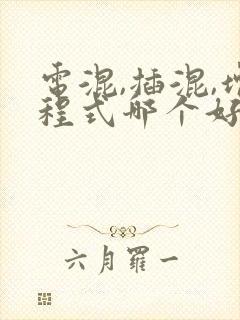 電混,插混,增
程式哪个好
六月羅一